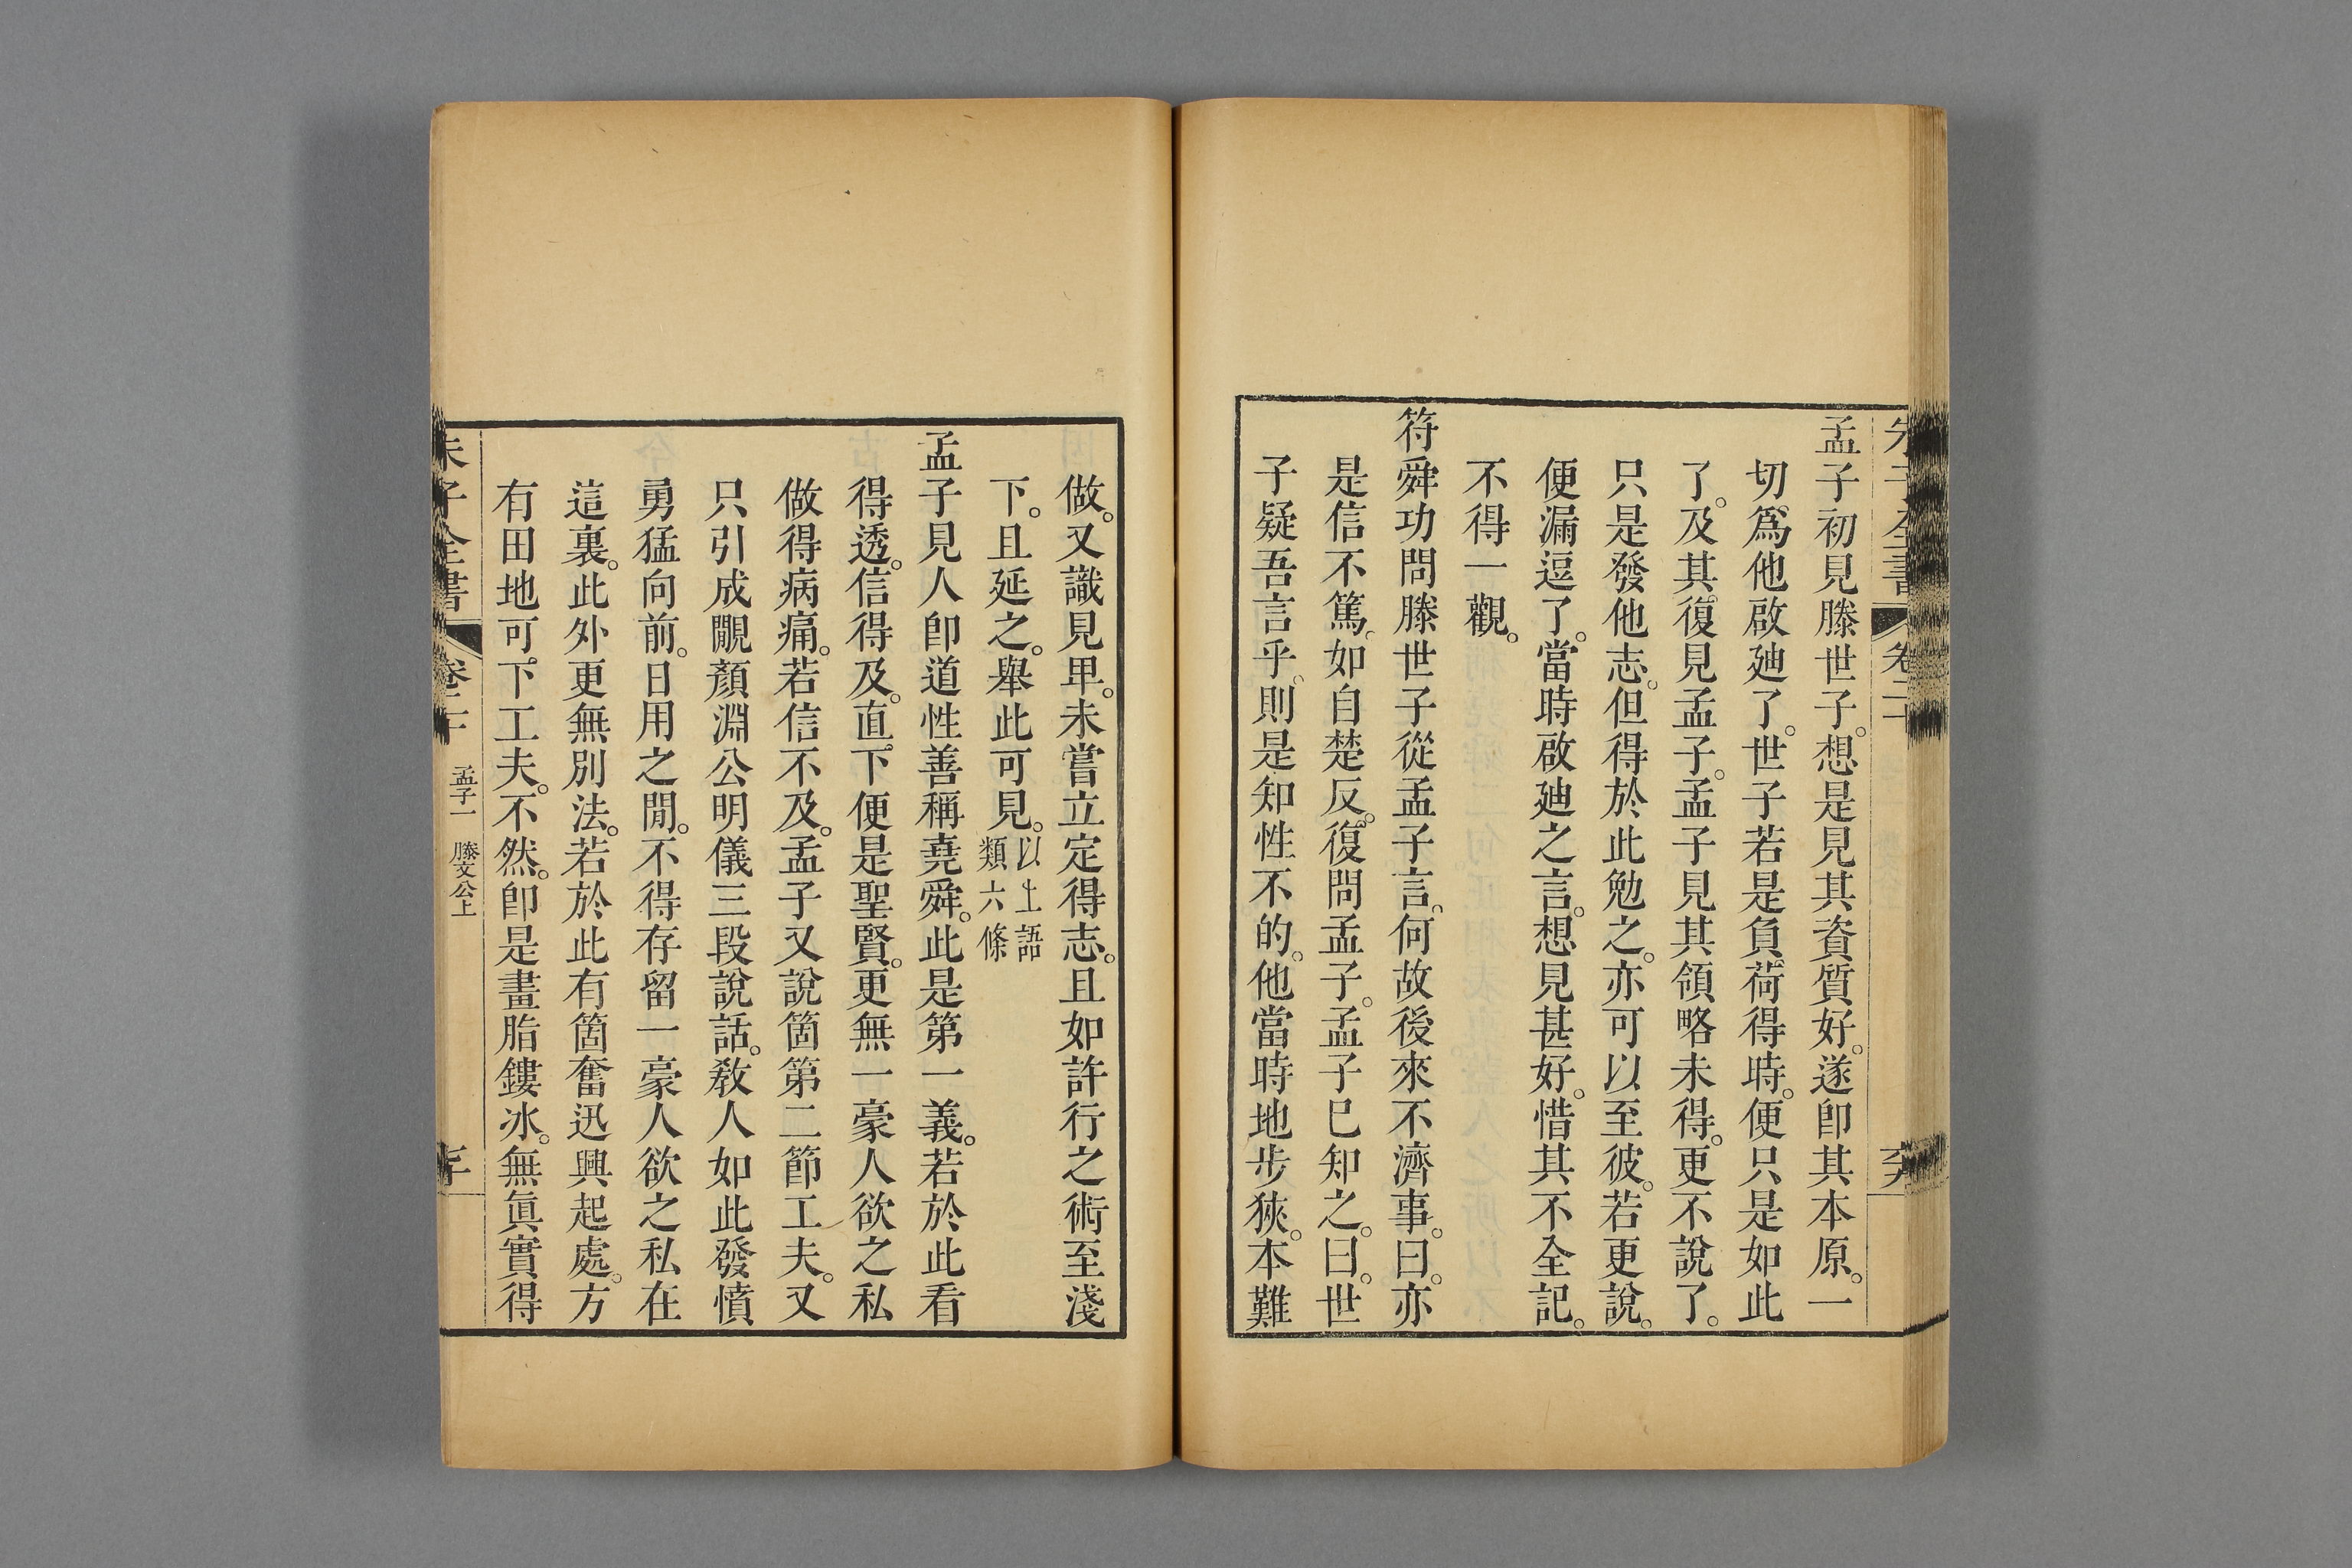 孟子初見滕世子。想是見其資質好。遂卽其本原。一
切爲他啟廸了。世子若是負荷得時。便只是如此
了。及其復見孟子。孟子見其領略未得。更不說了。
只是發他志。但得於此勉之。亦可以至彼。若更說。
便漏逗了。當時啟廸之言。想見甚好。惜其不全記。
不得一觀。
符舜功問滕世子從孟子言。何故後來不濟事。曰。亦
是信不篤。如自楚反。復問孟子。孟子已知之。曰。世
子疑吾言乎。則是知性不的。他當時地步狹。本難
做。又識見卑。未嘗立定得志。且如許行之術至淺
下。且延之。舉此可見。以上語
類六條
孟子見人卽道性善稱堯舜。此是第一義。若於此看
得透。信得及。直下便是聖賢。更無一豪人欲之私
做得病痛。若信不及。孟子又說箇第二節工夫。又
只引成覵顏淵公明儀三段說話。敎人如此發憤
勇猛向前。日用之閒。不得存留一豪人欲之私在
這裏。此外更無別法。若於此有箇奮迅興起處。方
有田地可下工夫。不然。卽是畫脂鏤冰。無眞實得
朱子全書
卷二十
孟子一 滕文公上